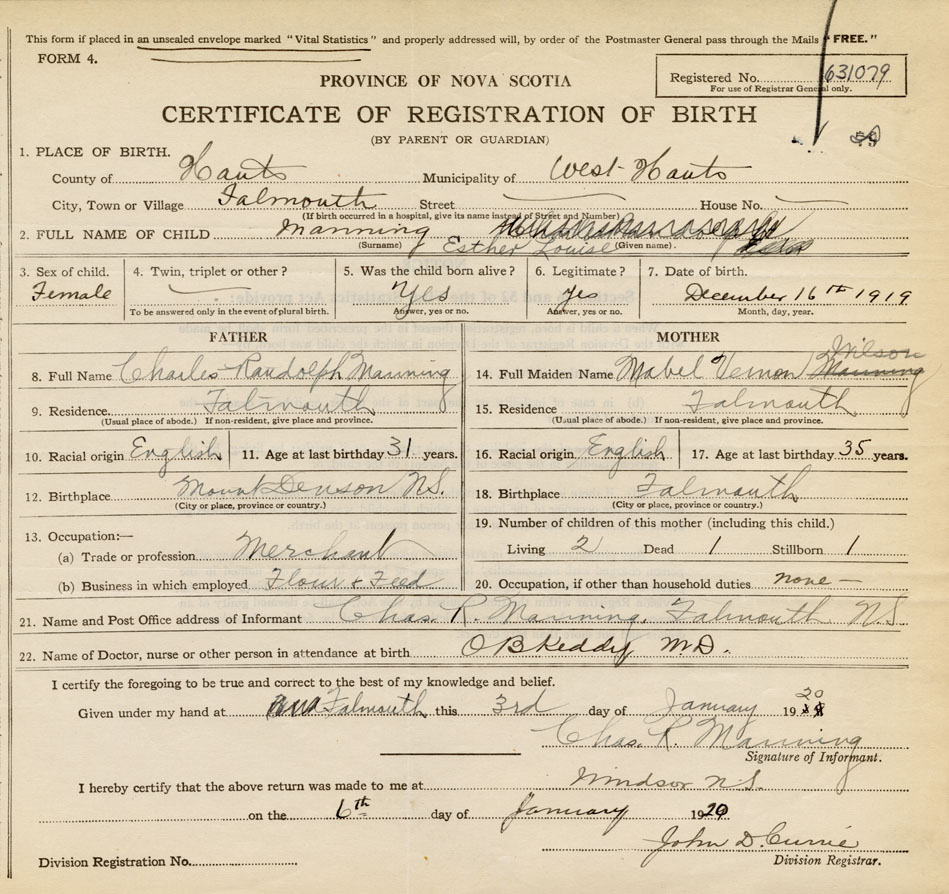 This form if placed in an unsealed envelope marked "Vital Statistics" and properly addressed will, by order of the Postmaster General pass through the Mails "FREE."
FORM 4.
Registered No. 631079
For use of Registrar General only.
PROVINCE OF NOVA SCOTIA
CERTIFICATE OF REGISTRATION OF BIRTH
(BY PARENT OR GUARDIAN)
1. PLACE OF BIRTH.
County of Hants Municipality of West Hants
City, Town or Village Falmouth Street House No.
(If birth occurred in a hospital, give its name instead of Street and Number)
2. FULL NAME OF CHILD Manning
(Surname) Esther Louise (Given name).
3. Sex of child. 4. Twin, triplet or other? 5. Was the child born alive? 6. Legitimate? 7. Date of birth.
Female Yes yes December 16th 1919
To be answered only in the event of plural birth. Answer, yes or no. Answer, yes or no. Month, day, year.
FATHER
8. Full Name Charles Randolph Manning
9. Residence Falmouth
(Usual place of abode.) If non-resident, give place and province.
10. Racial origin English 11. Age at last birthday 31 years.
12. Birthplace Mount Denson N.S.
(City or place, province or country.)
13. Occupation:—
(a) Trade or profession Merchant
(b) Business in which employed Flour & Feed
MOTHER
14. Full Maiden Name Mabel Vernon Wilson Manning
15. Residence Falmouth
(Usual place of abode.) If non-resident, give place and province.
16. Racial origin English 17. Age at last birthday 35 years.
18. Birthplace Falmouth
(City or place, province or country.)
19. Number of children of this mother (including this child.)
Living 2 Dead 1 Stillborn 1
20. Occupation, if other than household duties none —
21. Name and Post Office address of Informant Chas. R. Manning, Falmouth N.S.
22. Name of Doctor, nurse or other person in attendance at birth O B Keddy M.D.
I certify the foregoing to be true and correct to the best of my knowledge and belief.
Given under my hand at Falmouth this 3rd day of January 1920
Chas. R. Manning
Signature of Informant.
I hereby certify that the above return was made to me at Windsor N.S.
on the 6th day of January 1920
John D. Currie
Division Registrar.
Division Registration No.